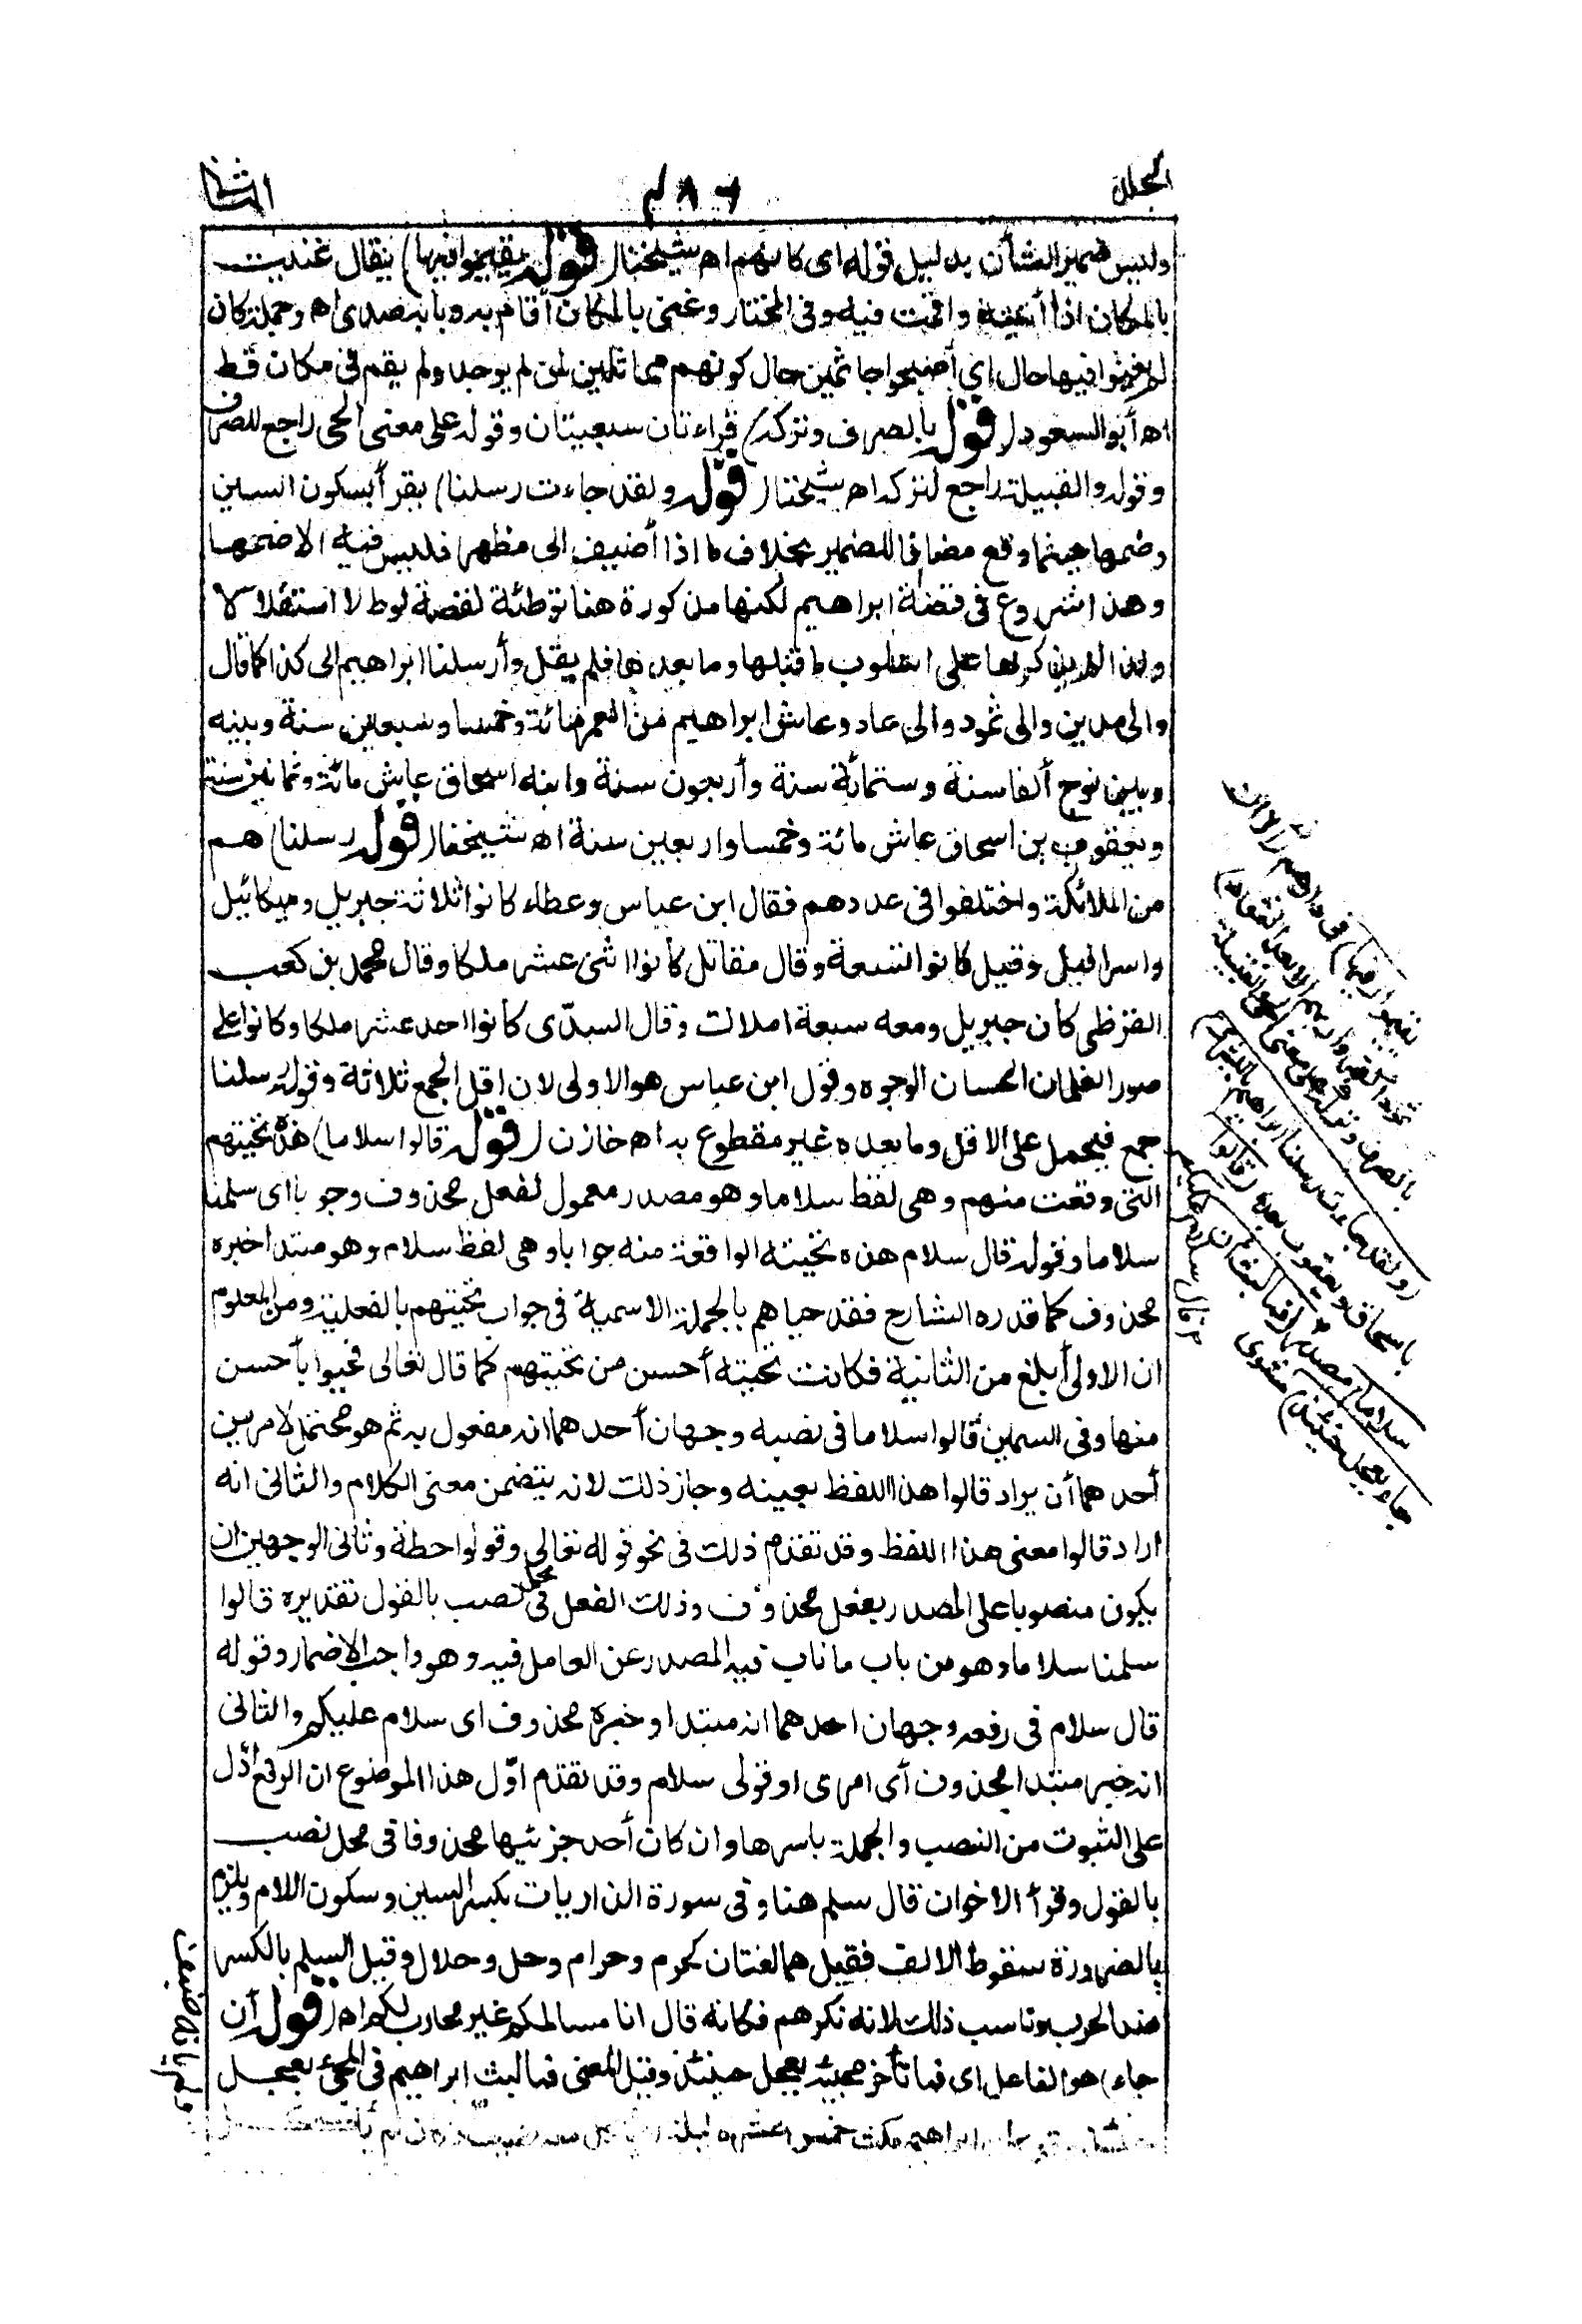 الجلد
٤٨٦
الثاني
وليس ضمير الشأن بدليل قوله اى كانهم اه شيخنا (قوله يقيموا فيها) يقال غنيت
بالمكان اذا أتيته واقمت فيه وفى المختار وغنى بالمكان أقام به وبابه صدى اه وجملة كان
لم يغنوا فيها حال اي أصبحوا جاثمين حال كونهم مماثلين لمن لم يوجد ولم يقم فى مكان قط
اه أبو السعود (قوله بالصرف وتركه) قراءتان سبعيتان وقوله على معنى الحى راجع للصرف
وقوله والقبيلة راجع لتركه اه شيخنا (قوله ولقد جاءت رسلنا) يقرأ بسكون السين
وضمها حيثما وقع مضافا للضمير بخلاف ما اذا أضيف الى مظهر فليس فيه الا ضمها
وهذا شروع فى قصة ابراهيم لكنها مذكورة هنا توطئة لقصة لوط لا استقلالا
ولذا لم يذكرها على اسلوب ما قبلها وما بعدها فلم يقل وأرسلنا ابراهيم الى كذا كما قال
والى مدين والى ثمود والى عاد وعاش ابراهيم من العمر مائة وخمسا وسبعين سنة وبينه
وبين نوح ألفا سنة وستمائة سنة وأربعون سنة وابنه اسحاق عاش مائة وثمانين سنة
ويعقوب بن اسحاق عاش مائة وخمسا واربعين سنة اه شيخنا (قوله رسلنا) هم
من الملائكة واختلفوا فى عددهم فقال ابن عباس وعطاء كانوا ثلاثة جبريل وميكائيل
واسرافيل وقيل كانوا تسعة وقال مقاتل كانوا اثنى عشر ملكا وقال محمد بن كعب
القرظى كان جبريل ومعه سبعة املاك وقال السدّى كانوا احد عشر ملكا وكانوا على
صور الغلمان الحسان الوجوه وقول ابن عباس هو الاولى لان اقل الجمع ثلاثة وقوله رسلنا
جمع فيحمل على الاقل وما بعده غير مقطوع به اه خازن (قوله قالوا سلاما) هذه تحيتهم
التى وقعت منهم وهى لفظ سلاما وهو مصدر معمول لفعل محذوف وجوبا اى سلمنا
سلاما وقوله قال سلام هذه تحيته الواقعة منه جوابا وهى لفظ سلام وهو مبتدا خبره
محذوف كما قدره الشارح فقد حياهم بالجملة الاسمية فى جواب تحيتهم بالفعلية ومن المعلوم
ان الاولى أبلغ من الثانية فكانت تحيته أحسن من تحيتهم كما قال تعالى فحيوا بأحسن
منها وفى السمين قالوا سلاما فى نصبه وجهان أحدهما انه مفعول به ثم هو محتمل لامرين
أحدهما أن يراد قالوا هذا اللفظ بعينه وجاز ذلك لانه يتضمن معنى الكلام والثانى انه
اراد قالوا معنى هذا اللفظ وقد تقدم ذلك فى نحو قوله تعالى وقولوا حطة وثانى الوجهين ان
يكون منصوبا على المصدر بفعل محذوف وذلك الفعل فى محل نصب بالقول تقديره قالوا
سلمنا سلاما وهو من باب ما ناب فيه المصدر عن العامل فيه وهو واجب الاضمار وقوله
قال سلام فى رفعه وجهان احدهما انه مبتدا وخبره محذوف اى سلام عليكم والثانى
انه خبر مبتدا محذوف أى امرى او قولى سلام وقد تقدم اوّل هذا الموضوع ان الرفع أدل
على الثبوت من النصب والجملة باسرها وان كان أحد جزئيها محذوفا فى محل نصب
بالقول وقرأ الاخوان قال سلم هنا وفى سورة الذاريات بكسر السين وسكون اللام ويلزم
بالضرورة سقوط الالف فقيل هما لغتان كحرم وحرام وحل وحلال وقيل السلم بالكسر
ضد الحرب وناسب ذلك لانه نكرهم فكانه قال انا مسالمكم غير محارب لكم اه (قوله أن
جاء) هو الفاعل اى فما تأخر مجيئه بعجل حينئذ وقيل المعنى فما لبث ابراهيم فى المجئ بعجل
ابراهيم مكث خمس عشرة ليلة
يقيموا (فيها) فى دارهم (الا ان
ثمود كفروا ربهم الا بعدا لثمود)
بالصرف وتركه على معنى الحى والقبيلة
(ولقد جاءت رسلنا ابراهيم بالبشرى)
باسحاق ويعقوب بعده (قالوا
سلاما) مصدر (قال سلام) عليكم
(فما لبث ان
جاء بعجل حنيذ) مشوى